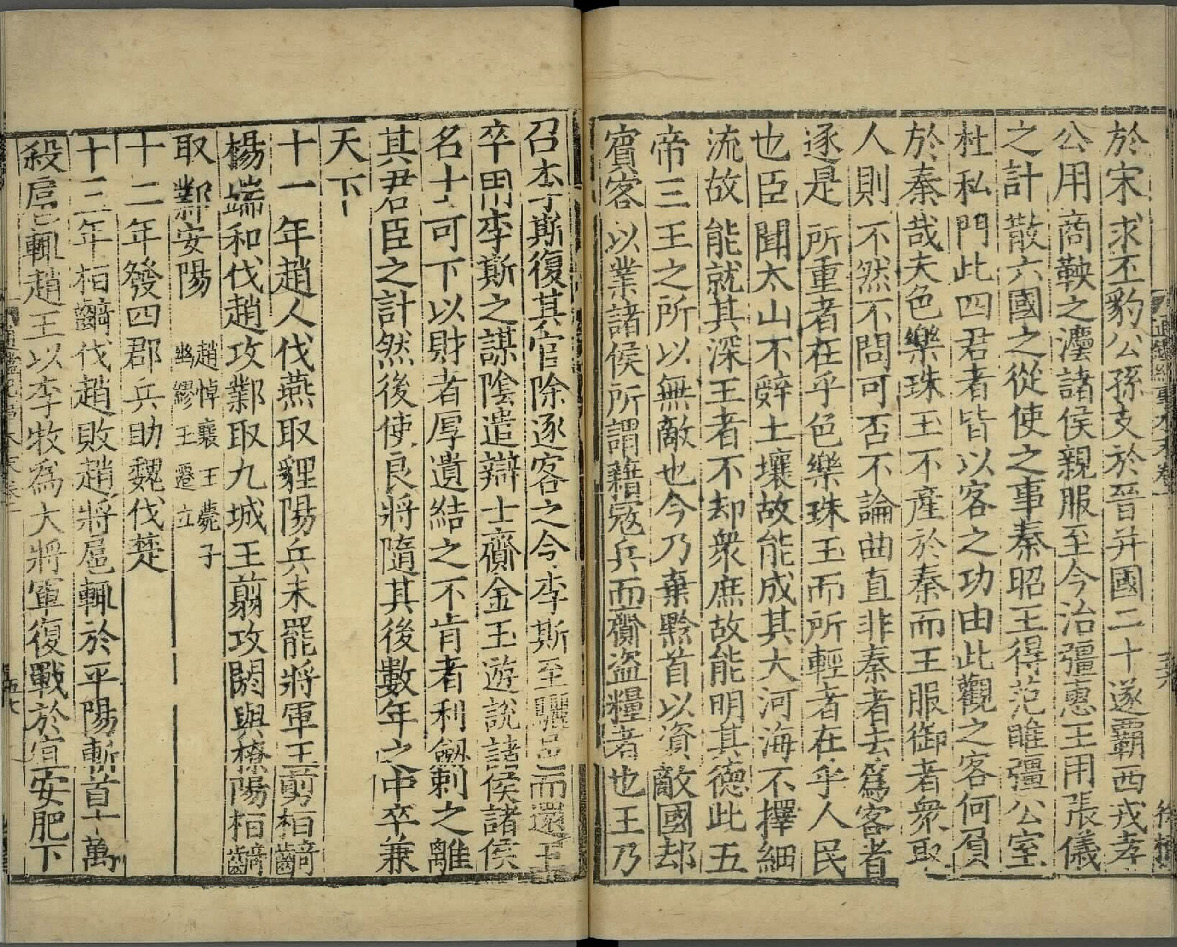 於宋求丕豹公孫支於晉并國二十遂霸西戎孝
公用商鞅之灋諸侯親服至今治彊惠王用張儀
之計散六國之從使之事秦昭王得范雎彊公室
杜私門此四君者皆以客之功由此觀之客何負
於秦哉夫色樂珠玉不產於秦而王服御者衆取
人則不然不問可否不論曲直非秦者去爲客者
逐是所重者在乎色樂珠玉而所輕者在乎人民
也臣聞太山不辤土壤故能成其大河海不擇細
流故能就其深王者不却衆庶故能明其德此五
帝三王之所以無敵也今乃棄黔首以資敵國却
賓客以業諸侯所謂藉寇兵而齎盜糧者也王乃
召李斯復其官除逐客之令李斯至驪邑而還王
卒用李斯之謀陰遣辯士齎金玉遊說諸侯諸侯
名士可下以財者厚遺結之不肯者利劔刺之離
其君臣之計然後使良將隨其後數年之中卒兼
天下
十一年趙人伐燕取貍陽兵未罷將軍王翦桓齮
楊端和伐趙攻鄴取九城王翦攻閼與橑陽桓齮
取鄴安陽
趙悼襄王薨子
幽繆王遷立
十二年發四郡兵助魏伐楚
十三年桓齮伐趙敗趙將扈輒於平陽斬首十萬
殺扈輒趙王以李牧爲大將軍復戰於宜安肥下